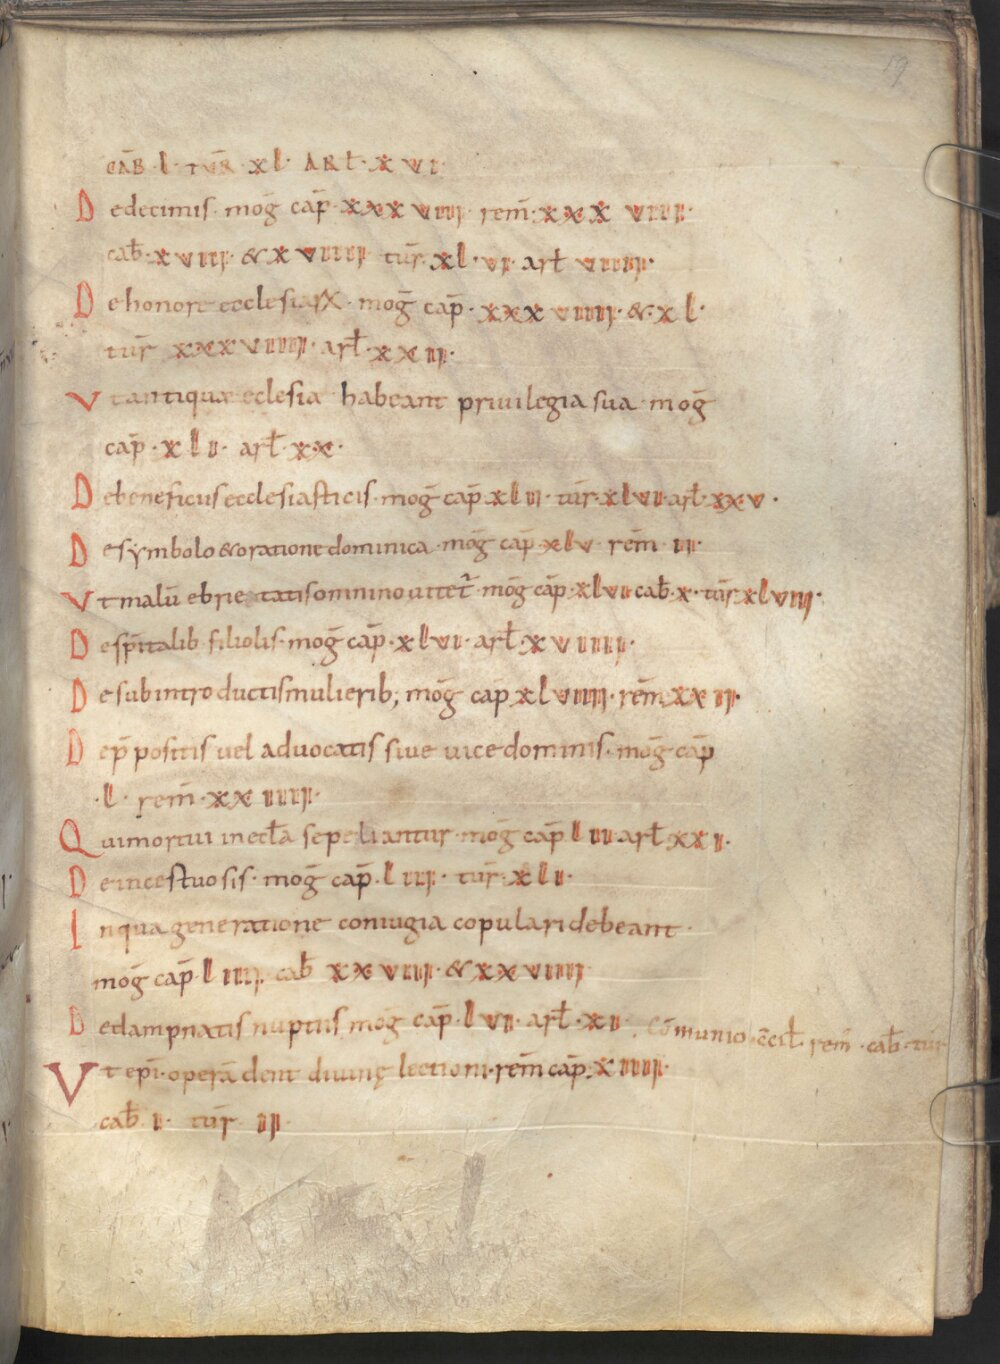 19
CAB̅ · L · TUR̅ · XL · ARL̅ · XVI ·
De decimis · mog̅ cap̅ · xxxviiii · rem̅ · xxxviiii ·
cab̅ · xviiii · & xviiiii · tur̅ · xl · vi · arl̅ viiiii ·
De honore ecclesiarꝝ · mog̅ cap̅ · xxxviiiii · & · xl ·
tur̅ xxxviiiii · arl̅ · xxiii ·
Ut antiquæ eclesiæ habeant privilegia sua · mog̅
cap̅ · xli · arl̅ · xx ·
De beneficiis ecclesiasticis · mog̅ cap̅ xlii · tur̅ · xlvi · arl̅ · xxv ·
De symbolo & oratione dominica · mog̅ cap̅ · xlv · rem̅ · ii ·
Ut malū ebrietatis omnino vitet᷑ · mog̅ cap̅ · xlvi cab̅ · x · tur̅ xlviii ·
De sp̅italib · filiolis · mog̅ cap̅ · xlvi · arl̅ · xviiiii ·
De subintroductis mulierib; mog̅ cap̅ xlviiii · rem̅ xxii ·
De p̅positis vel advocatis sive vicedominis · mog̅ cap̅
· l · rem̅ · xxiiii ·
Qui mortui in ecl̅a sepeliantur · mog̅ cap̅ lii arl̅ xxi ·
De incestuosis · mog̅ cap̅ · liii · tur̅ · xli ·
In qua generatione coniugia copulari debeant ·
mog̅ cap̅ · liiii · cab̅ xxviiii · & xxviiiii
De dampnatis nuptiis mog̅ cap̅ · lvi · arl̅ · xi · Cōmunio · c̅cil̅ · rem̅ · cab̅ · tur̅
Ut ep̅i · operā dent divinę lectioni · rem̅ cap̅ · xiiii ·
cab̅ i · tur̅ iii